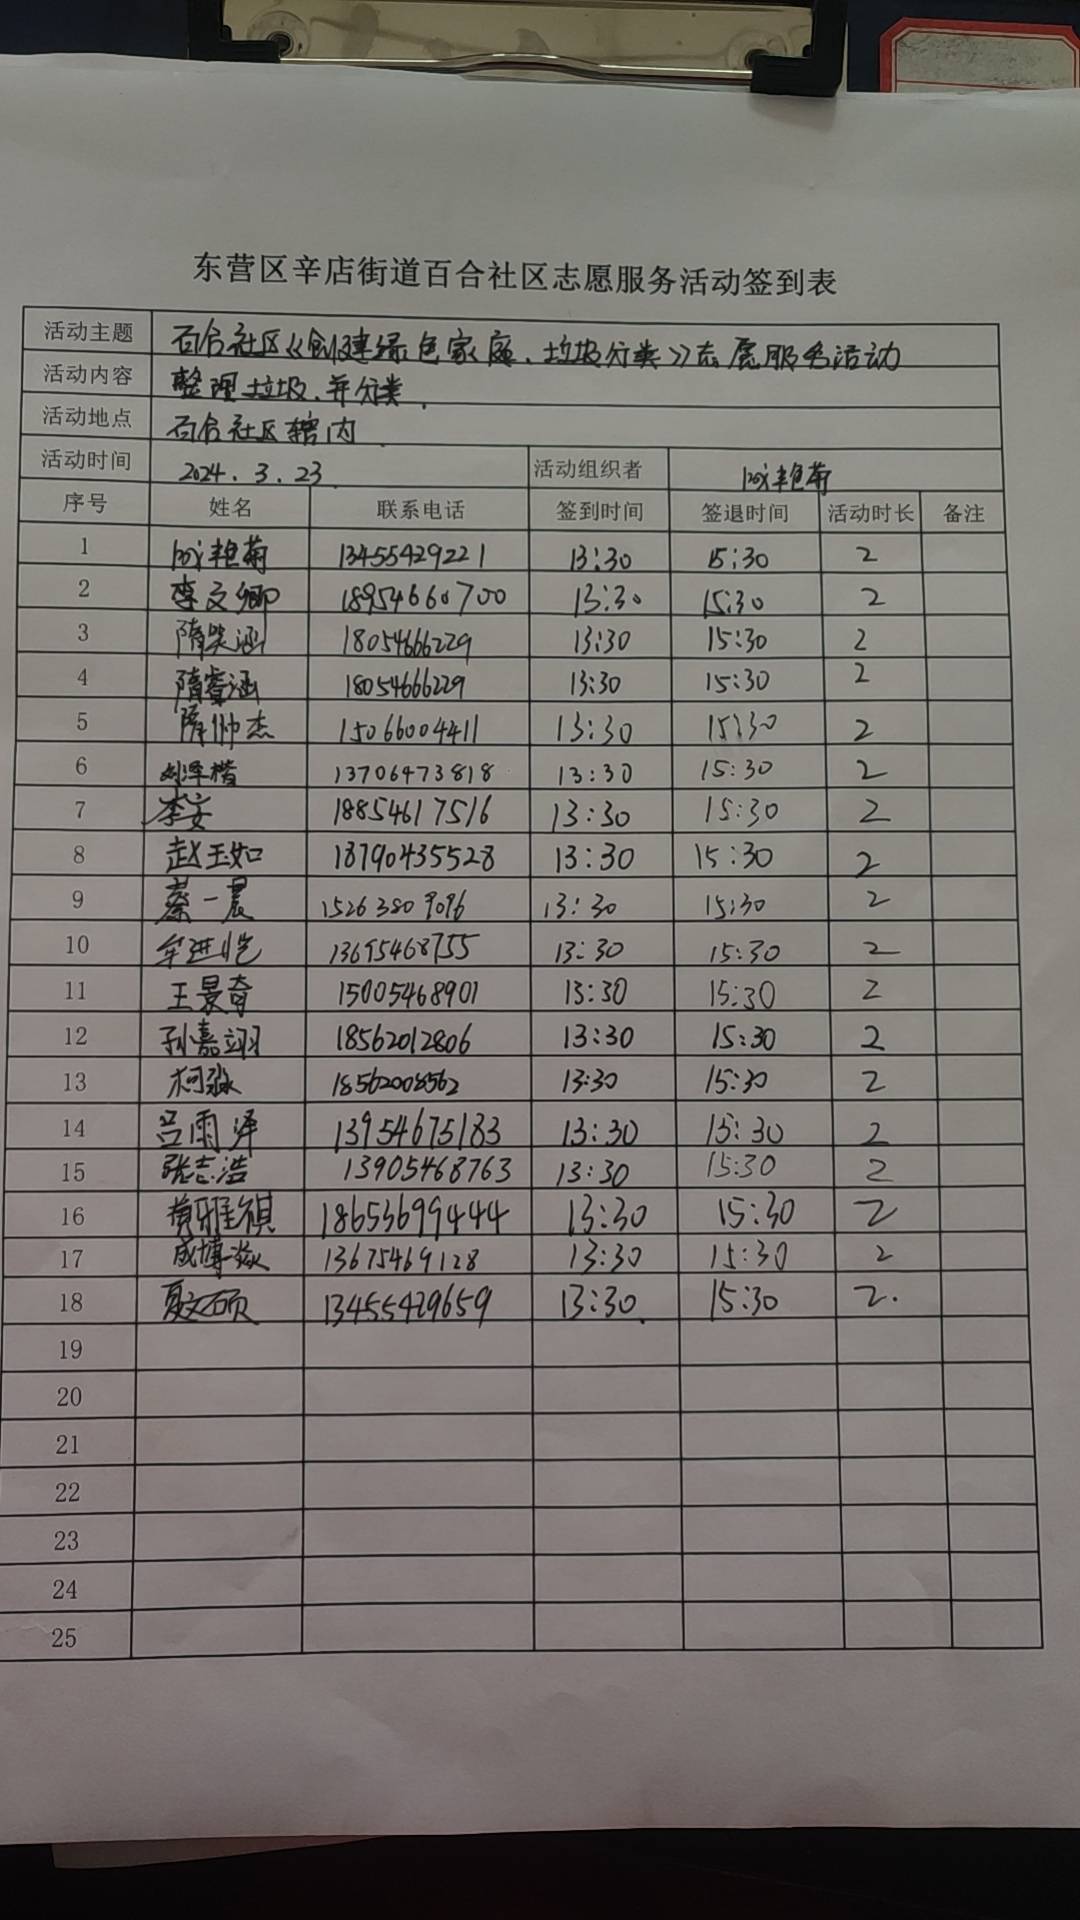 东营区辛店街道百合社区志愿服务活动签到表
活动主题 百合社区《创建绿色家庭、垃圾分类》志愿服务活动
活动内容 整理垃圾,并分类.
活动地点 百合社区辖内.
活动时间 2024.3.23 活动组织者 艳菊
序号 姓名 联系电话 签到时间 签退时间 活动时长 备注
1 艳菊 13455429221 13:30 15:30 2
2 李文卿 18954660700 13:30 15:30 2
3 隋笑涵 18054666229 13:30 15:30 2
4 隋睿涵 18054666229 13:30 15:30 2
5 隋帅杰 15066004411 13:30 15:30 2
6 刘泽楷 13706473818 13:30 15:30 2
7 李安 18854617516 13:30 15:30 2
8 赵玉如 18790435528 13:30 15:30 2
9 蔡一晨 15263809096 13:30 15:30 2
10 牟进恺 13695468755 13:30 15:30 2
11 王景育 15005468901 13:30 15:30 2
12 孙嘉翊 18562012806 13:30 15:30 2
13 柯淼 18562008562 13:30 15:30 2
14 吕雨泽 13954675183 13:30 15:30 2
15 张志浩 13905468763 13:30 15:30 2
16 黄雅祺 18653699444 13:30 15:30 2
17 成博焱 13675469128 13:30 15:30 2
18 夏文硕 13455429659 13:30. 15:30 2.
19
20
21
22
23
24
25